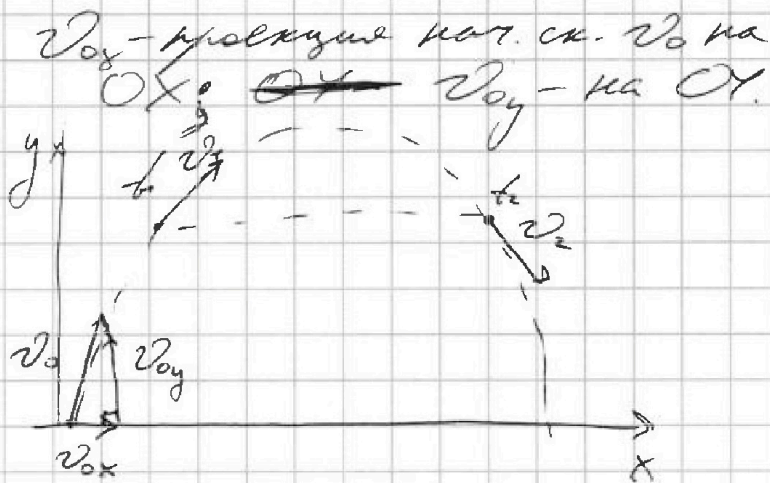 V₀ₓ - проекция нач. ск. V₀ на
OX; V₀y - на OY.
y
t₁ V₁
t₂
V₂
V₀ V₀y
V₀ₓ
X